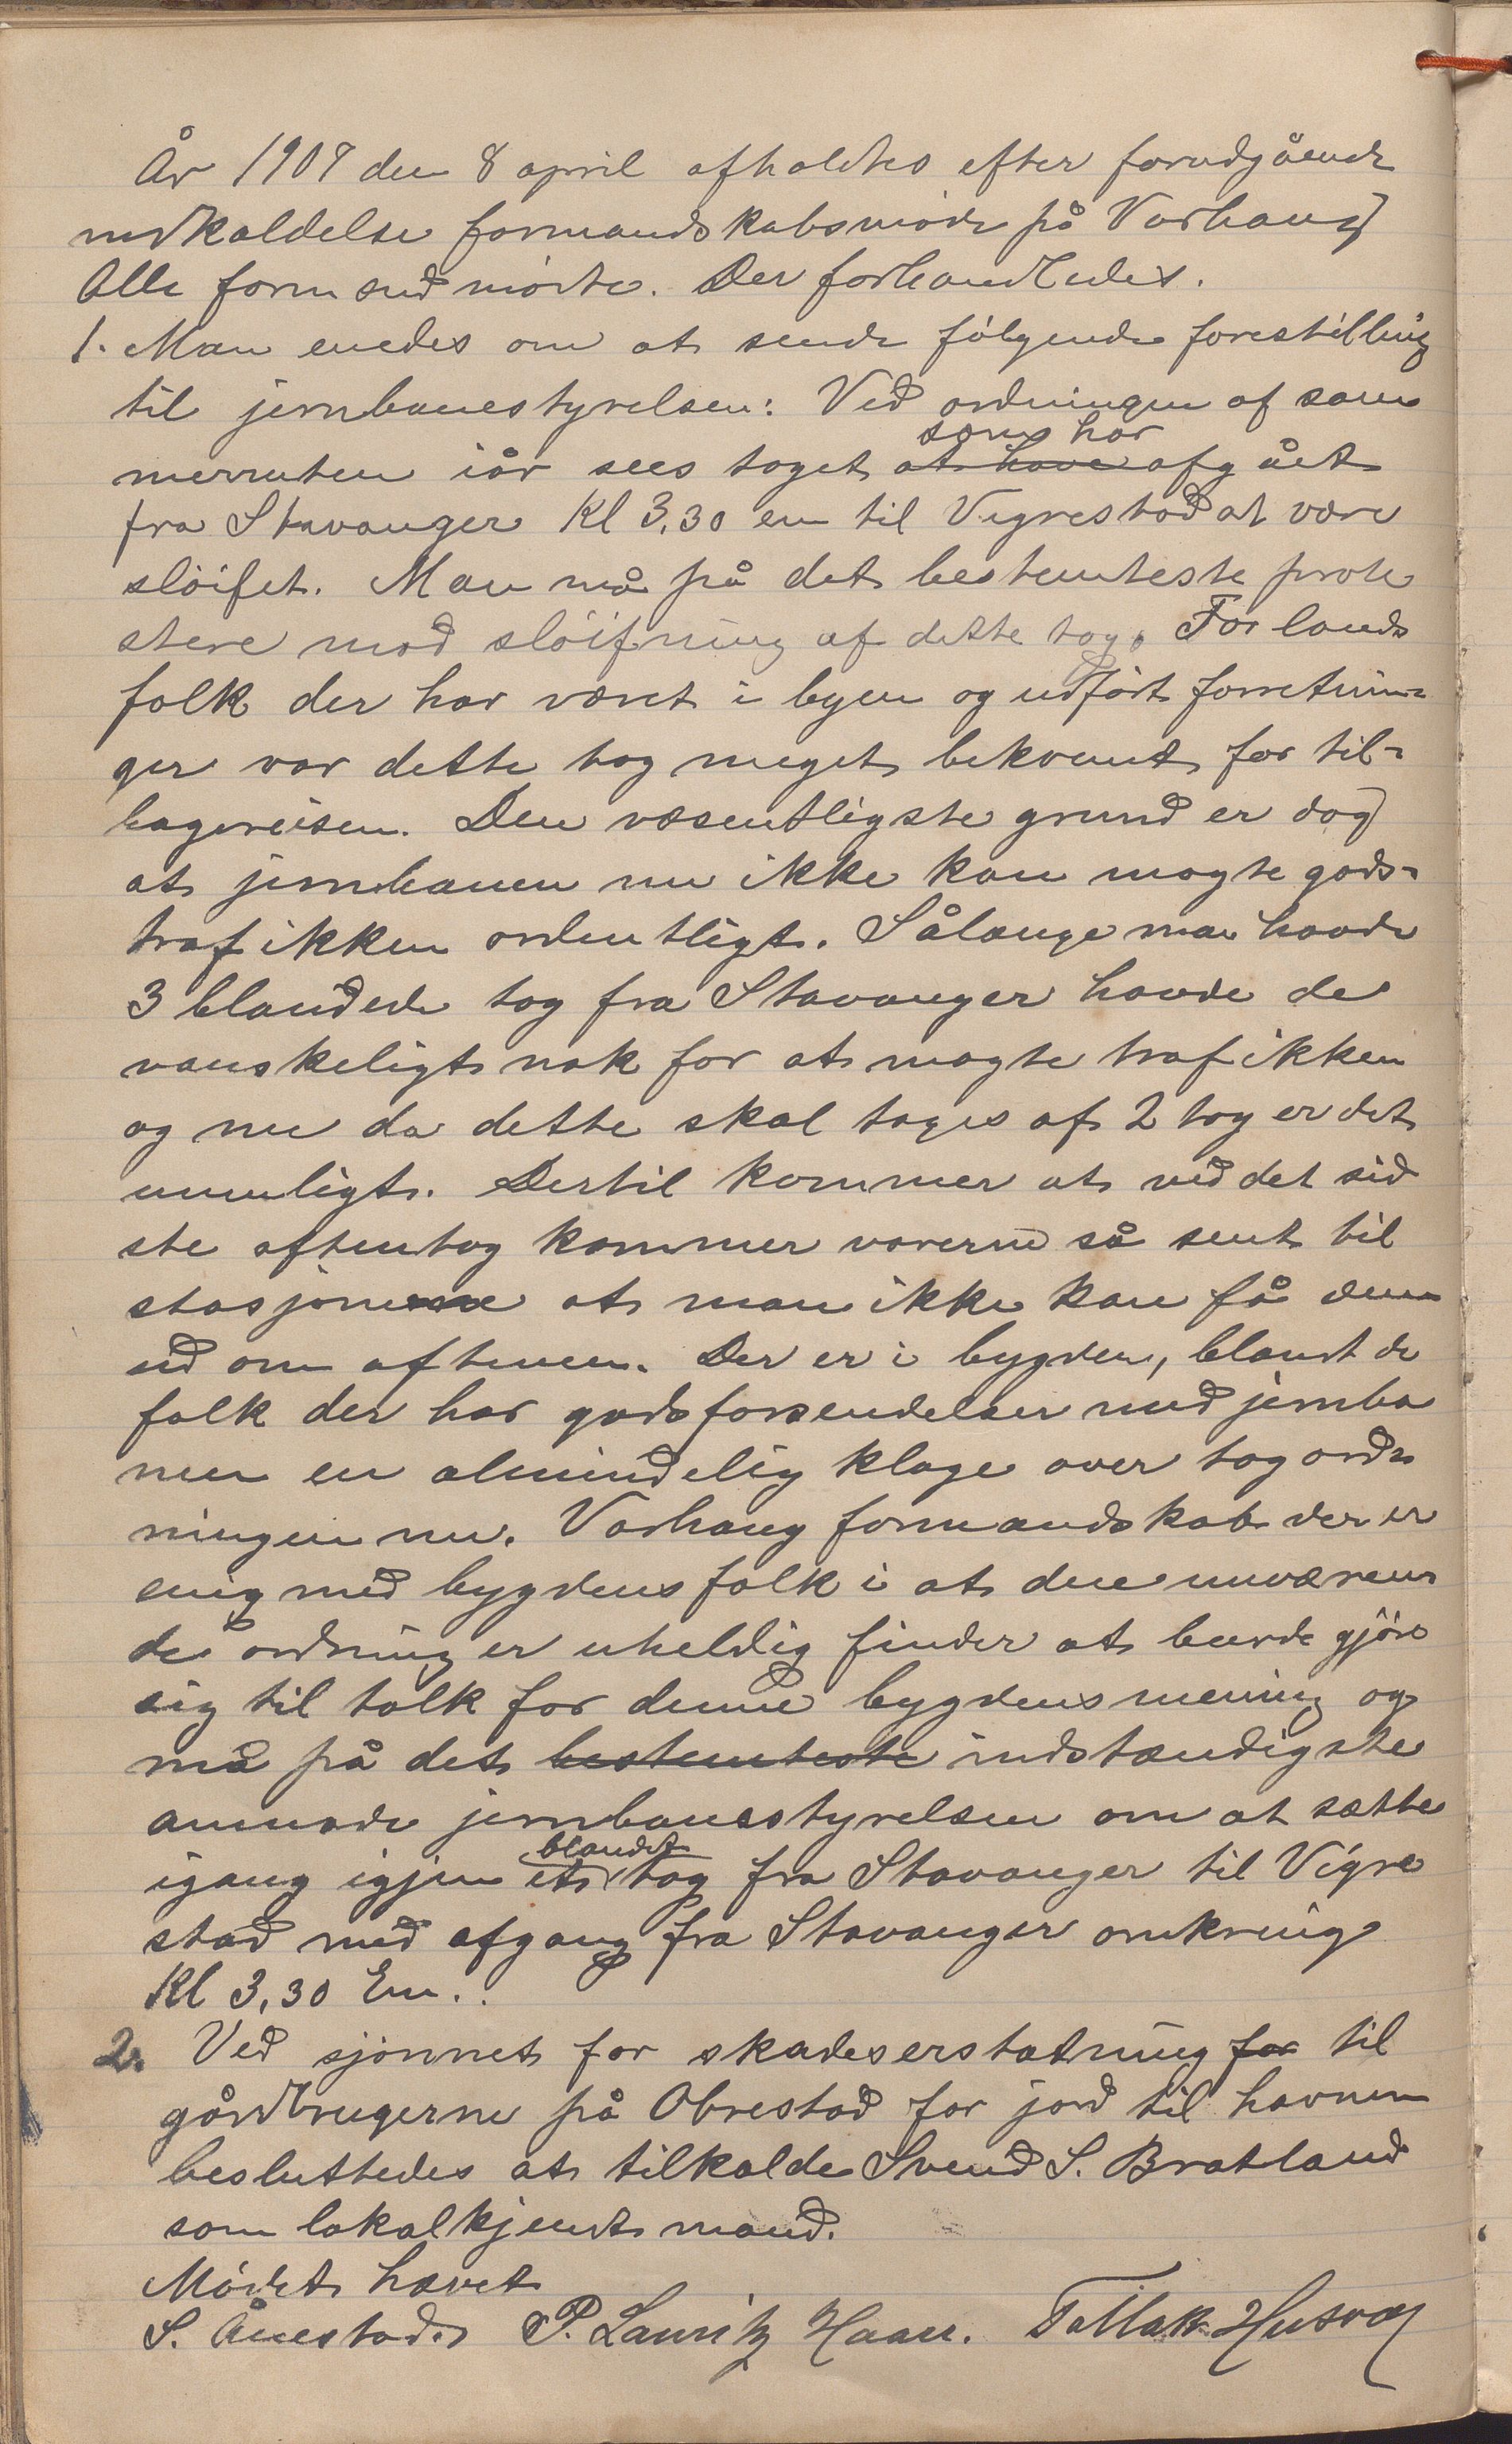 År 1909 den 8 april afholdtes efter forudgående
indkaldelse formandskabsmöde på Varhaug
Alle formænd mödte. Der forhandledes.
1. Man enedes om at sende fölgende forestilling
til jernbanestyrelsen: Ved ordningen af som
som har
merruten iår sees toget at have afgået
fra Stavanger Kl 3,30 em til Vigrestad at være
slöifet. Man må på det bestemteste prote
stere mod slöifning af dette tog. For lands
folk der har været i byen og udfört forretnin-
ger var dette tog meget bekvemt for til-
bagereisen. Den væsentligste grund er dog
at jernbanen nu ikke kan magte gods-
trafikken ordentligt. Sålænge man havde
3 blandede tog fra Stavanger havde de
vanskeligt nok for at magte trafikken
og nu da dette skal tages af 2 tog er det
umuligt. Dertil kommer at ved det sid
ste aftentog kommer varerne så sent til
stasjonene at man ikke kan få dem
ud om aftenen. Der er i bygden, blandt de
folk der har godsforsendelser med jernba
nen en almindelig klage over togord-
ningen nu. Varhaug formandskab der er
enig med bygdens folk i at den nuværen-
de ordning er uheldig finder at burde gjöre
sig til tolk for denne bygdens mening og
må på det bestemteste indstændigste
anmode jernbanestyrelsen om at sætte
blandet
igang igjen et tog fra Stavanger til Vigre
stad med afgang fra Stavanger omkring
Kl 3,30 Em.
2. Ved sjönnet for skadeserstatning for til
gårdbrugerne på Obrestad for jord til havnen
besluttedes at tilkalde Svend S. Bratland
som lokalkjendt mand.
Mödet hævet
S. Ånestad. P. Lauritz Haar. Tallak Husvæg